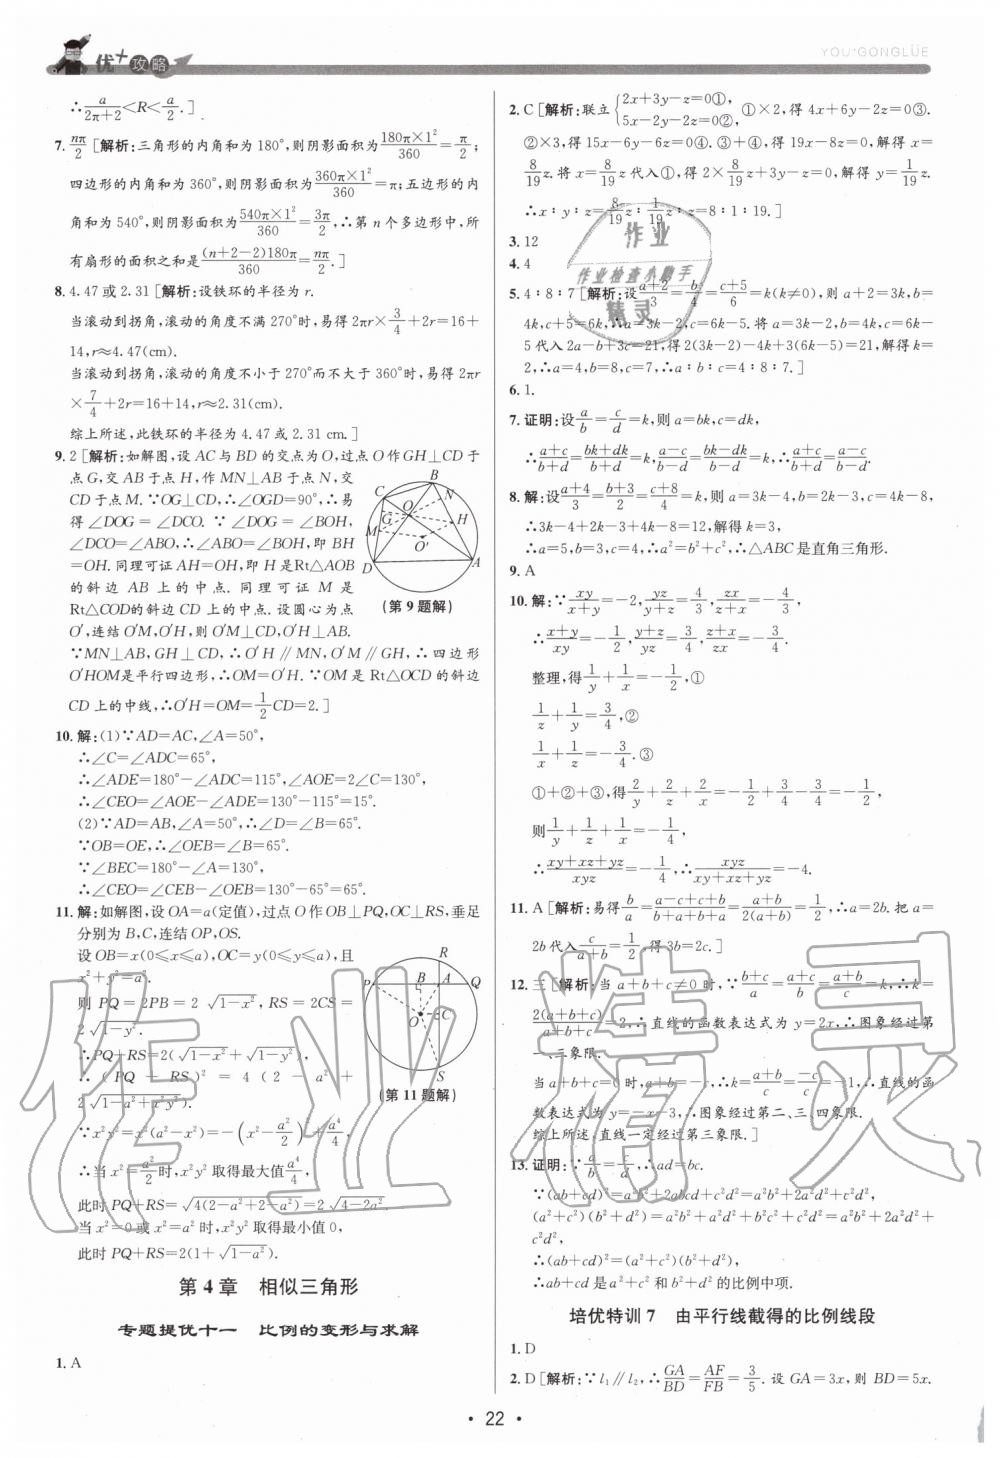 优+攻略
YOU+GONGLÜE
∴a/(2π+2)<R<a/2.]
7. nπ/2 [解析:三角形的内角和为180°,则阴影面积为(180π×1²)/360=π/2;
四边形的内角和为360°,则阴影面积为(360π×1²)/360=π;五边形的内
角和为540°,则阴影面积为(540π×1²)/360=3π/2,∴第n个多边形中,所
有扇形的面积之和是((n+2-2)180π)/360=nπ/2.]
8. 4.47或2.31 [解析:设铁环的半径为r.
当滚动到拐角,滚动的角度不满270°时,易得2πr×3/4+2r=16+
14,r≈4.47(cm).
当滚动到拐角,滚动的角度不小于270°而不大于360°时,易得2πr
×7/4+2r=16+14,r≈2.31(cm).
综上所述,此铁环的半径为4.47或2.31 cm.]
9. 2 [解析:如解图,设AC与BD的交点为O,过点O作GH⊥CD于
点G,交AB于点H,作MN⊥AB于点N,交
CD于点M.∵OG⊥CD,∴∠OGD=90°,∴易
得∠DOG=∠DCO.∵∠DOG=∠BOH,
∠DCO=∠ABO,∴∠ABO=∠BOH,即BH
=OH.同理可证AH=OH,即H是Rt△AOB
的斜边AB上的中点.同理可证M是
Rt△COD的斜边CD上的中点.设圆心为点
O′,连结O′M,O′H,则O′M⊥CD,O′H⊥AB.
(第9题解)
∵MN⊥AB,GH⊥CD,∴O′H∥MN,O′M∥GH,∴四边形
O′HOM是平行四边形,∴OM=O′H.∵OM是Rt△OCD的斜边
CD上的中线,∴O′H=OM=1/2CD=2.]
10. 解:(1)∵AD=AC,∠A=50°,
∴∠C=∠ADC=65°,
∴∠ADE=180°-∠ADC=115°,∠AOE=2∠C=130°,
∴∠CEO=∠AOE-∠ADE=130°-115°=15°.
(2)∵AD=AB,∠A=50°,∴∠D=∠B=65°.
∵OB=OE,∴∠OEB=∠B=65°.
∵∠BEC=180°-∠A=130°,
∴∠CEO=∠CEB-∠OEB=130°-65°=65°.
11. 解:如解图,设OA=a(定值),过点O作OB⊥PQ,OC⊥RS,垂足
分别为B,C,连结OP,OS.
设OB=x(0≤x≤a),OC=y(0≤y≤a),且
x²+y²=a².
则 PQ=2PB=2√(1-x²), RS=2CS=
2√(1-y²),
∴PQ+RS=2(√(1-x²)+√(1-y²)),
∴(PQ+RS)²=4(2-a²+
2√(1-a²+x²y²)).
(第11题解)
∵x²y²=x²(a²-x²)=-(x²-a²/2)²+a⁴/4,
∴当x²=a²/2时,x²y²取得最大值a⁴/4,
此时PQ+RS=√(4(2-a²+2-a²))=2√(4-2a²).
当x²=0或x²=a²时,x²y²取得最小值0,
此时PQ+RS=2(1+√(1-a²)).
第4章 相似三角形
专题提优十一 比例的变形与求解
1. A
2. C [解析:联立{2x+3y-z=0①, 5x-2y-2z=0②, ①×2,得4x+6y-2z=0③.
②×3,得15x-6y-6z=0④.③+④,得19x-8z=0,解得x=
8/19z.将x=8/19z代入①,得2×8/19z+3y-z=0,解得y=1/19z.
∴x∶y∶z=8/19z∶1/19z∶z=8∶1∶19.]
3. 12
4. 4
5. 4∶8∶7 [解析:设(a+2)/3=b/4=(c+5)/6=k(k≠0),则a+2=3k,b=
4k,c+5=6k,∴a=3k-2,c=6k-5.将a=3k-2,b=4k,c=6k-
5代入2a-b+3c=21,得2(3k-2)-4k+3(6k-5)=21,解得k=
2,∴a=4,b=8,c=7,∴a∶b∶c=4∶8∶7.]
6. 1.
7. 证明:设a/b=c/d=k,则a=bk,c=dk,
∴(a+c)/(b+d)=(bk+dk)/(b+d)=k=(bk-dk)/(b-d)=(a-c)/(b-d).
8. 解:设(a+4)/3=(b+3)/2=(c+8)/4=k,则a=3k-4,b=2k-3,c=4k-8,
∴3k-4+2k-3+4k-8=12,解得k=3,
∴a=5,b=3,c=4,∴a²=b²+c²,∴△ABC是直角三角形.
9. A
10. 解:∵xy/(x+y)=-2,yz/(y+z)=4/3,zx/(z+x)=-4/3,
∴(x+y)/xy=-1/2,(y+z)/yz=3/4,(z+x)/zx=-3/4.
整理,得1/y+1/x=-1/2,①
1/z+1/y=3/4,②
1/x+1/z=-3/4.③
①+②+③,得2/y+2/z+2/x=-1/2+3/4-3/4=-1/2,
则1/y+1/z+1/x=-1/4,
∴(xy+xz+yz)/xyz=-1/4,∴xyz/(xy+xz+yz)=-4.
11. A [解析:易得b/a=(a-c+c+b)/(b+a+b+a)=(a+b)/(2(a+b))=1/2,∴a=2b.把a=
2b代入c/(a+b)=1/2,得3b=2c.]
12. 三 [解析:当a+b+c≠0时,∵(b+c)/a=(a+c)/b=(a+b)/c=k,∴k=
2(a+b+c)/(a+b+c)=2,∴直线的函数表达式为y=2x,∴图象经过第
一、三象限.
当a+b+c=0时,则a+b=-c,∴k=(a+b)/c=-c/c=-1,∴直线的函
数表达式为y=-x-3,∴图象经过第二、三、四象限.
综上所述,直线一定经过第三象限.]
13. 证明:∵a/b=c/d,∴ad=bc.
∵(ab+cd)²=a²b²+2abcd+c²d²=a²b²+2a²d²+c²d²,
(a²+c²)(b²+d²)=a²b²+a²d²+b²c²+c²d²=a²b²+2a²d²+
c²d²,
∴(ab+cd)²=(a²+c²)(b²+d²),
∴ab+cd是a²+c²和b²+d²的比例中项.
培优特训7 由平行线截得的比例线段
1. D
2. D [解析:∵l₁∥l₂,∴GA/BD=AF/FB=3/5.设GA=3x,则BD=5x.
• 22 •
作业
作业检查小助手
精灵
作业精灵